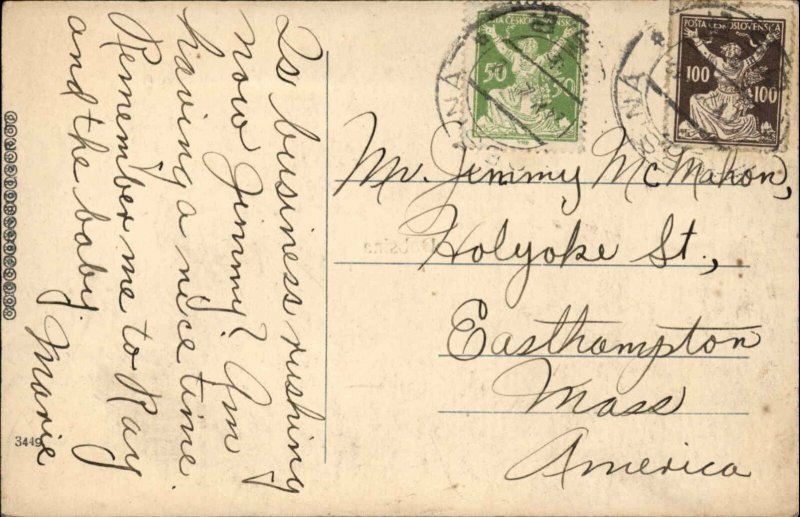 Is business rushing
now Jimmy? I'm
having a nice time.
Remember me to Ray
and the baby.
Marie
3449
POŠTA ČESKOSLOVENSKÁ
50 50
POŠTA ČESKOSLOVENSKÁ
100 100
Mr. Jimmy McMahon,
Holyoke St.,
Easthampton
Mass
America